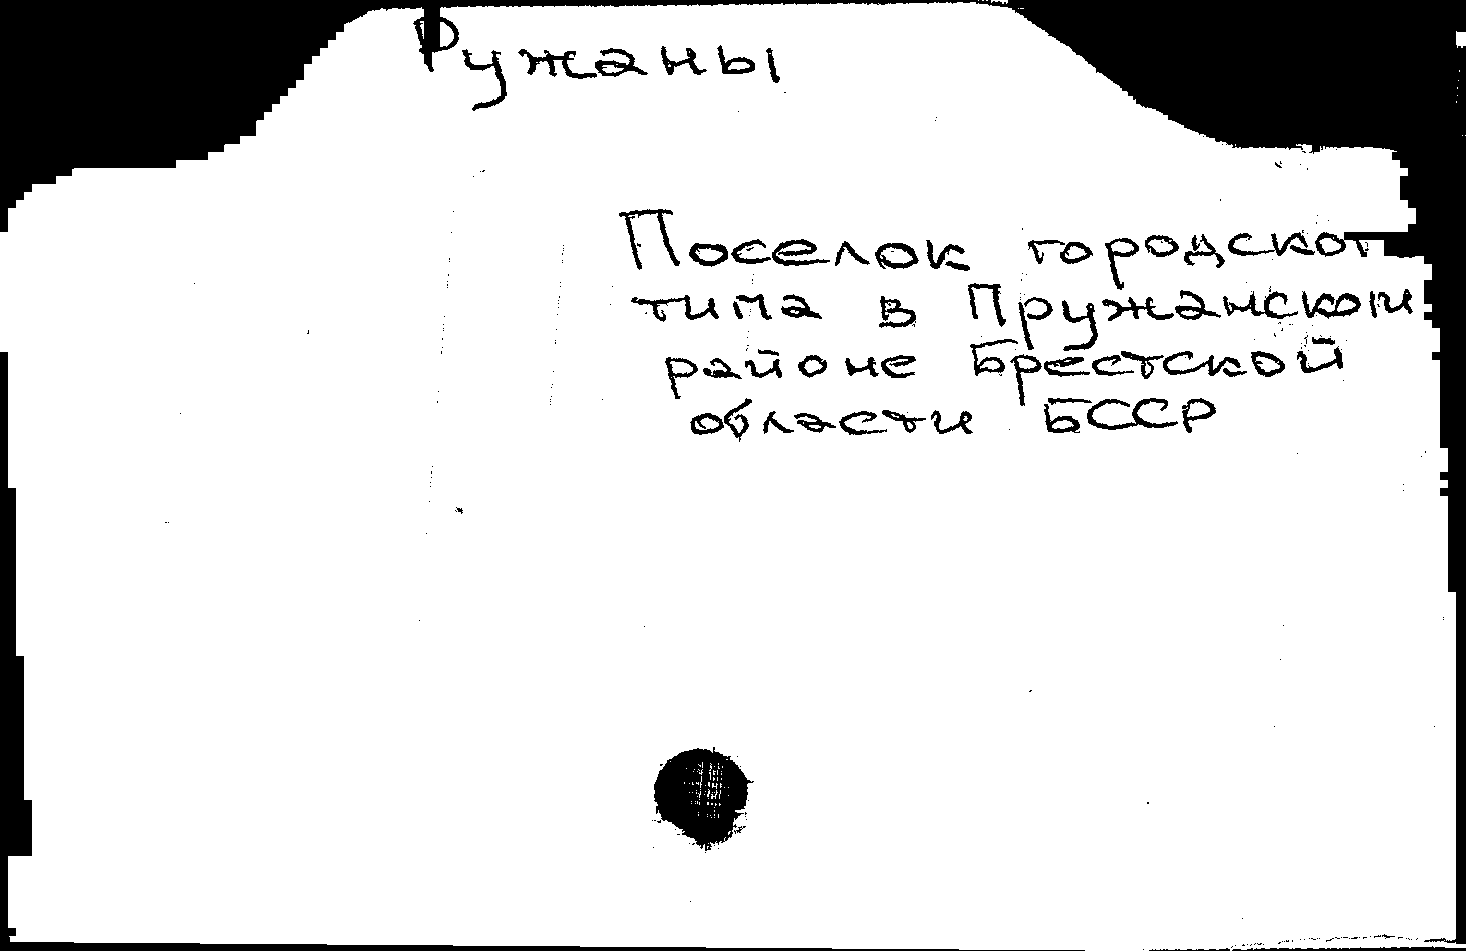 Ружаны
Поселок городского
типа в Пружанском
районе Брестской
области БССР